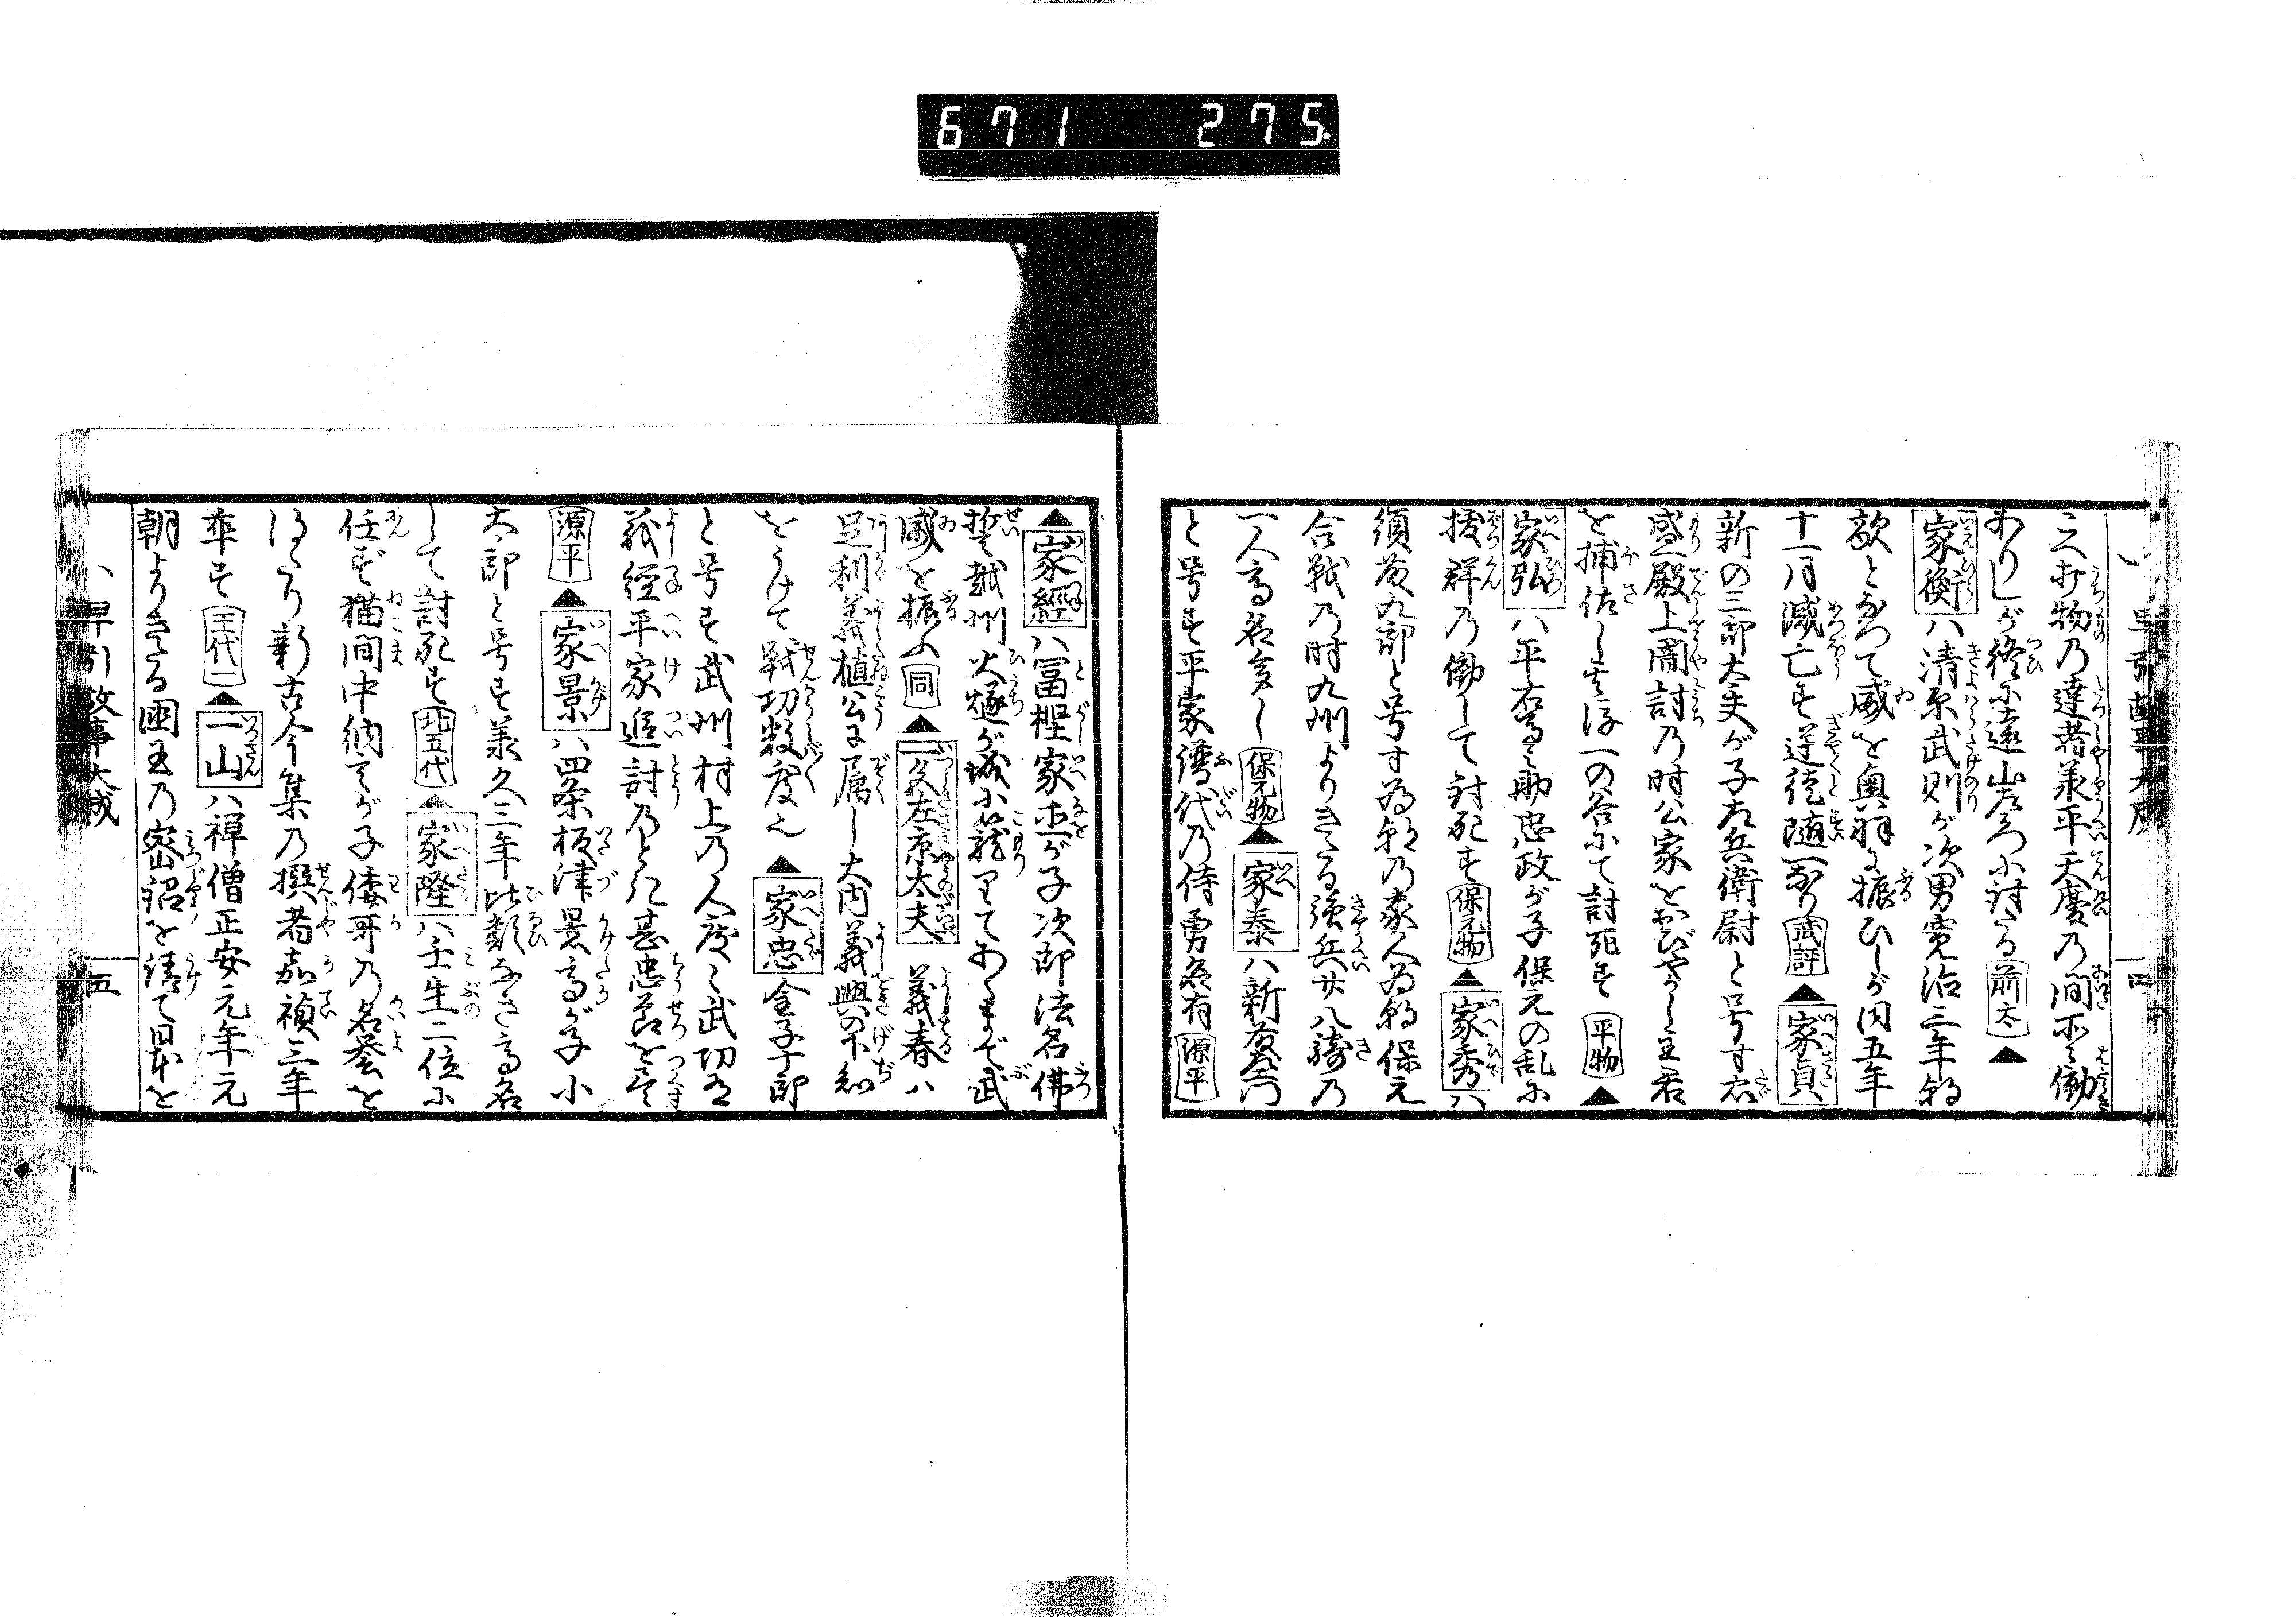 671 275
之打物乃達者承平天慶乃間所〻働
ありしが終に遠山岩片に討る 前太 ▲
家衡ハ清原武則が次男寛治二年朝
敵となつて威を奥羽に振ひしが同五年
十一月滅亡す逆徒随一なり 武評 ▲家貞ハ
新の三郎大夫が子左兵衛尉と号す忠
盛殿上闇討乃時公家をおびやかし主君
を補佐し其後一の谷にて討死す 平物 ▲
家弘ハ平右馬助忠政が子保元の乱に
抜群乃働して討死す 保元物 ▲家秀ハ
須藤九郎と号す為朝乃家人為朝保元
合戦乃時九州よりきたる強兵廿八騎乃
一人高名多し 保元物 ▲家泰ハ新藤左衛門
と号す平家譜代乃侍勇名有 源平
▲家經ハ冨樫家直が子次郎法名佛
誓越州火燧が城に籠りてあくまで武
威を振ふ 同 ▲一色左京太夫義春ハ
足利義植公に属し大内義興の下知
をうけて戦功数度也 ▲家忠 金子十郎
と号す武州村上乃人度〻武功有
義経平家追討乃とき甚忠節を尽す
源平 ▲家景ハ四条板津景高が子小
太郎と号す承久三年比類なき高名
して討死す 北五代 ▲家隆ハ壬生二位に
任ず猫間中納言が子倭哥乃名誉を
得たり新古今集乃撰者嘉禎三年
卒す 王代一 ▲一山ハ禅僧正安元年元
朝よりきたる國王乃密詔を請て日本を
八 早引故事大成 五
四